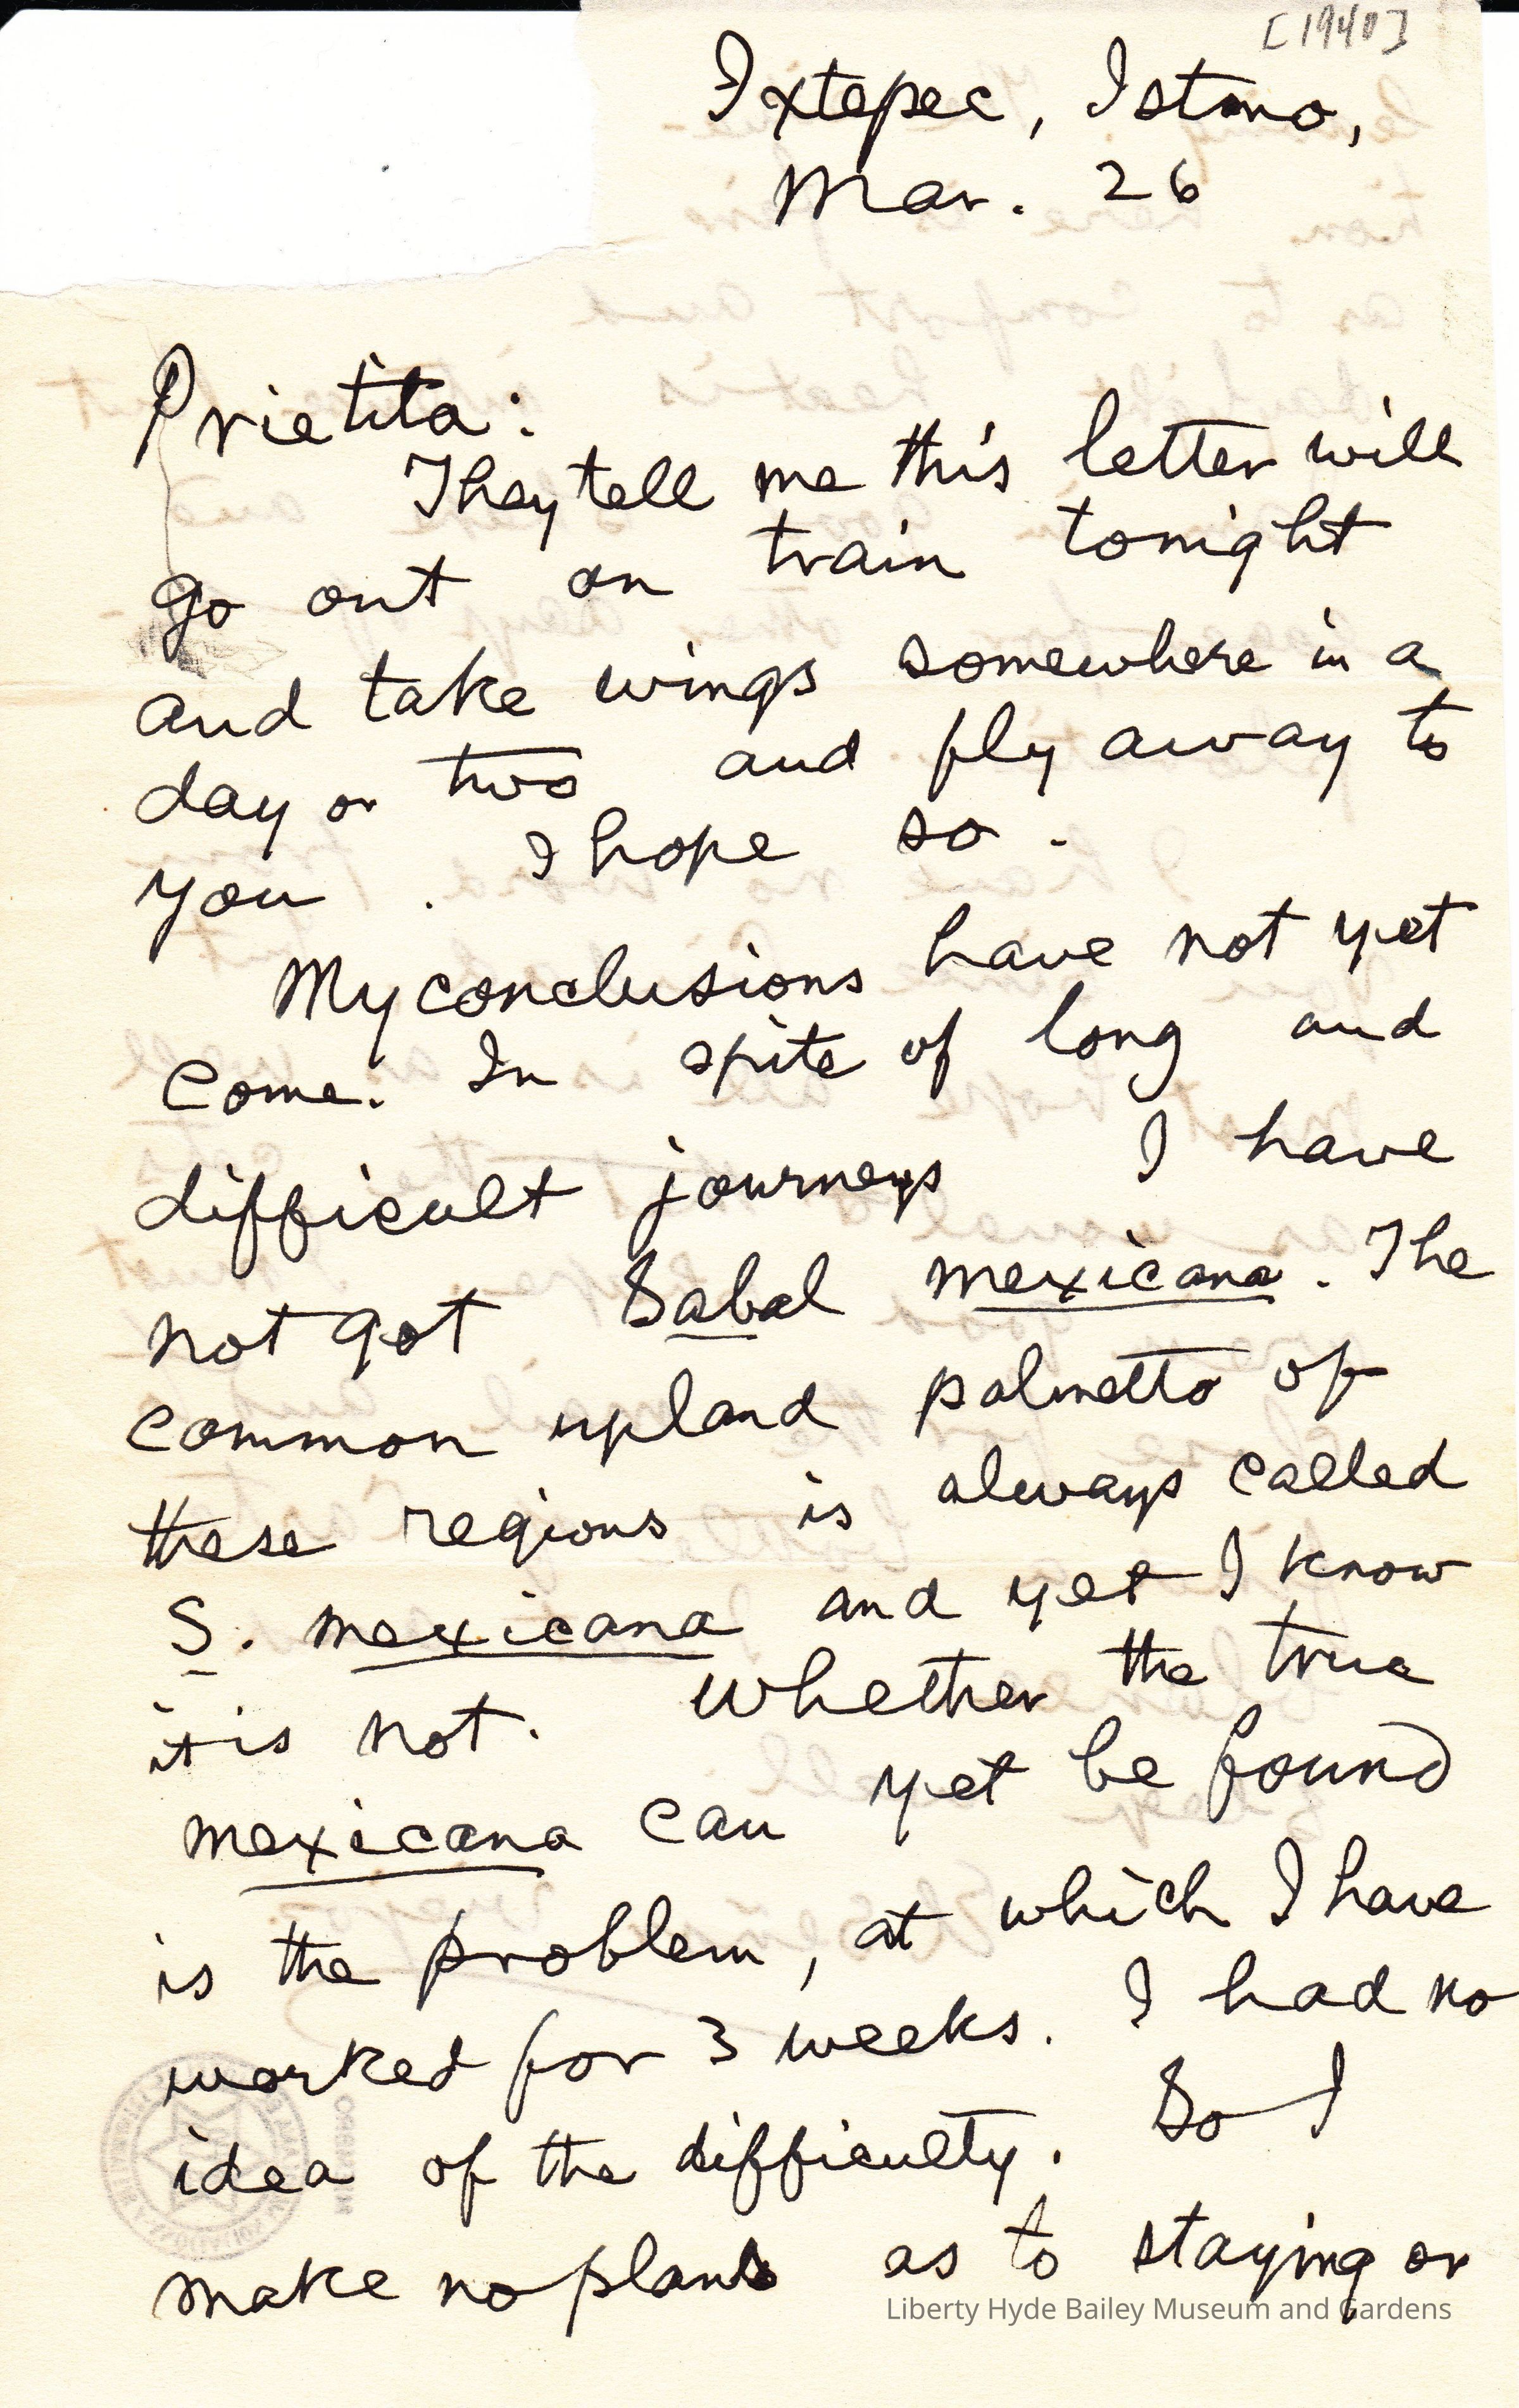 [1940]
Ixtepec, Istmo,
Mar. 26
Prietita:
They tell me this letter will
go out on train tonight
and take wings somewhere in a
day or two and fly away to
you. I hope so.
My conclusions have not yet
come. In spite of long and
difficult journeys I have
not got Sabal mexicana. The
common upland palmetto of
these regions is always called
S. mexicana and yet I know
it is not. Whether the true
mexicana can yet be found
is the problem, at which I have
worked for 3 weeks. I had no
idea of the difficulty. So I
make no plans as to staying or
Liberty Hyde Bailey Museum and Gardens